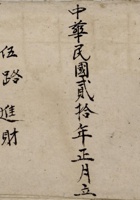 中華民國貳拾年正月立
伍路進財